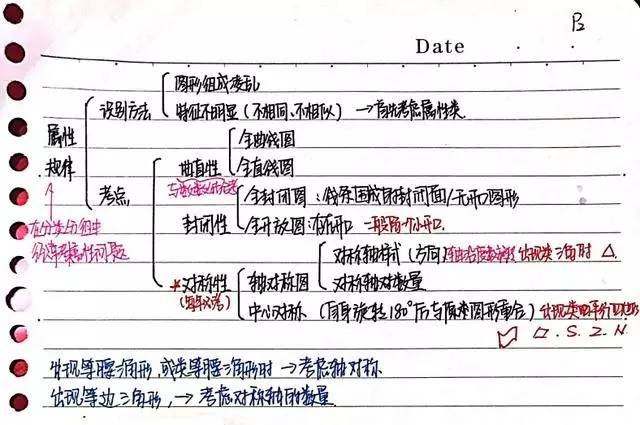 Date
图形组成凌乱
识别方法
特征不明显（不相同、不相似）→首先考虑属性类
属性
规律
全曲线图
曲直性
全直线图
考点
全封闭图：线条围成的封闭面/无开口图形
封闭性
全开放图：有开口 一般留一个小开口.
在分类分组中
经常考察属性问题
对称轴样式（方向） 出现类三角时 △.
*对称性
轴对称图
对称轴数量
中心对称（自身旋转180°后与原来图形重合）
▱.S.Z.N.
出现等腰三角形，或类等腰三角形时→考虑轴对称
出现等边三角形，→考虑对称轴的数量